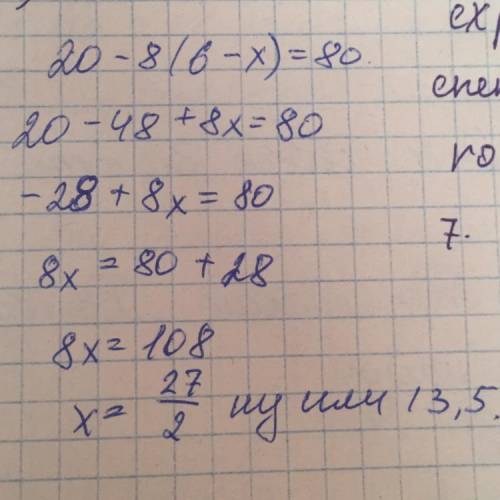 20 - 8(6 - x) = 80.
20 - 48 + 8x = 80
-28 + 8x = 80
8x = 80 + 28
8x = 108
x = 27/2 ну или 13,5.
7.